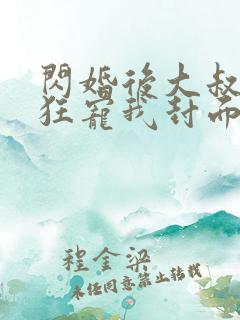 閃婚後大叔
狂寵我封面
程金梁
未任同意禁止转載